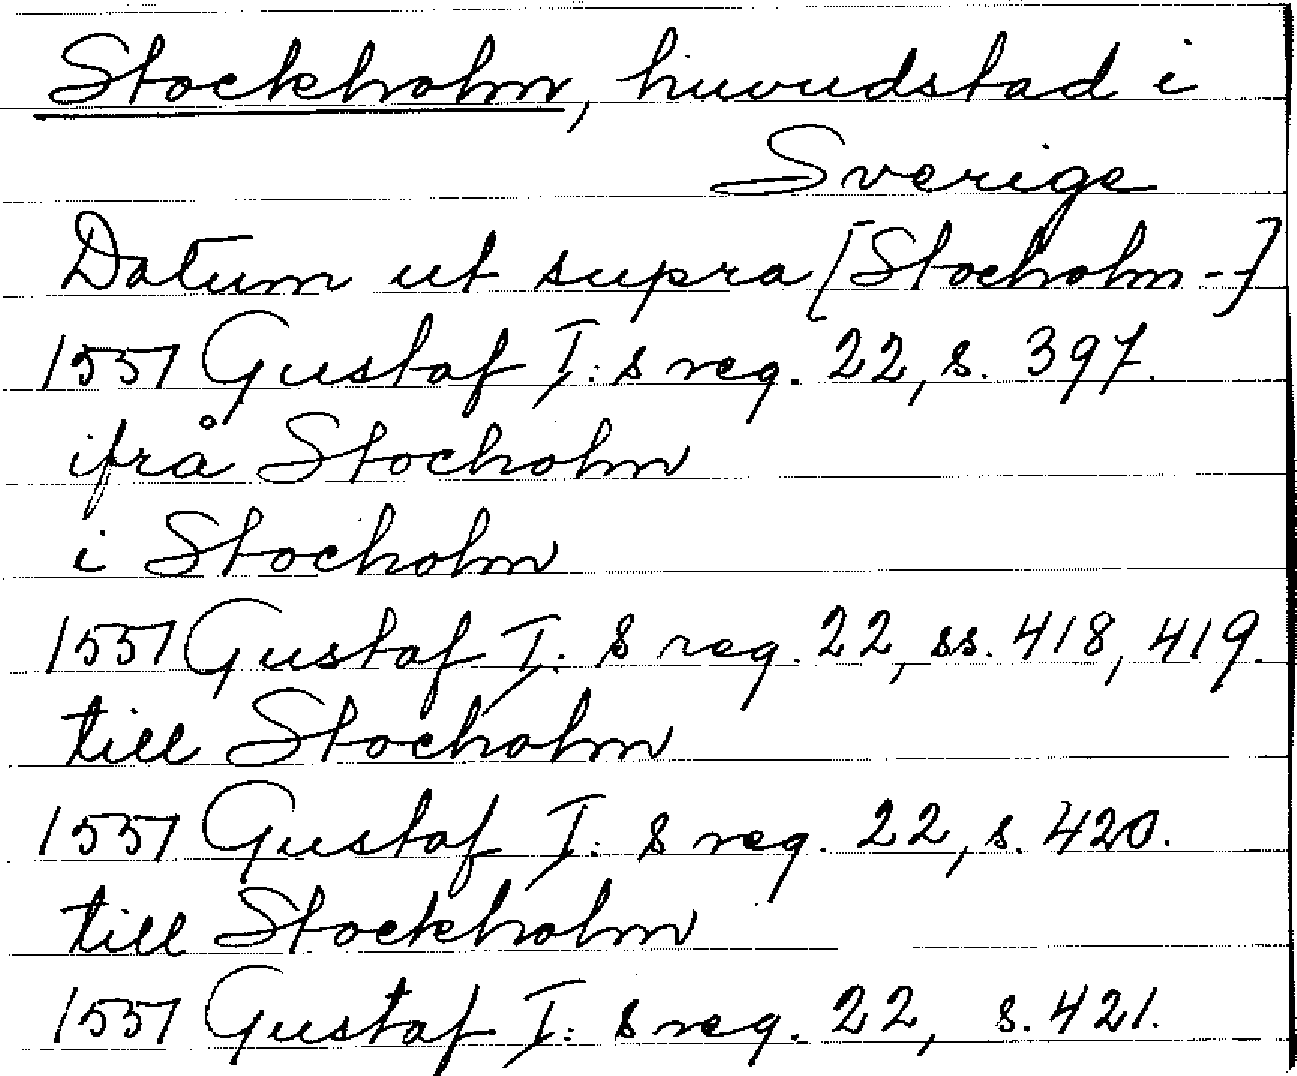 Stockholm, huvudstad i
Sverige
Datum ut supra [Stocholm --]
1551 Gustaf I:s reg. 22, s. 397.
ifrå Stocholm
i Stocholm
1551 Gustaf I:s reg. 22, ss. 418, 419.
till Stocholm
1551 Gustaf I:s reg. 22, s. 420.
till Stockholm
1551 Gustaf I:s reg. 22, s. 421.